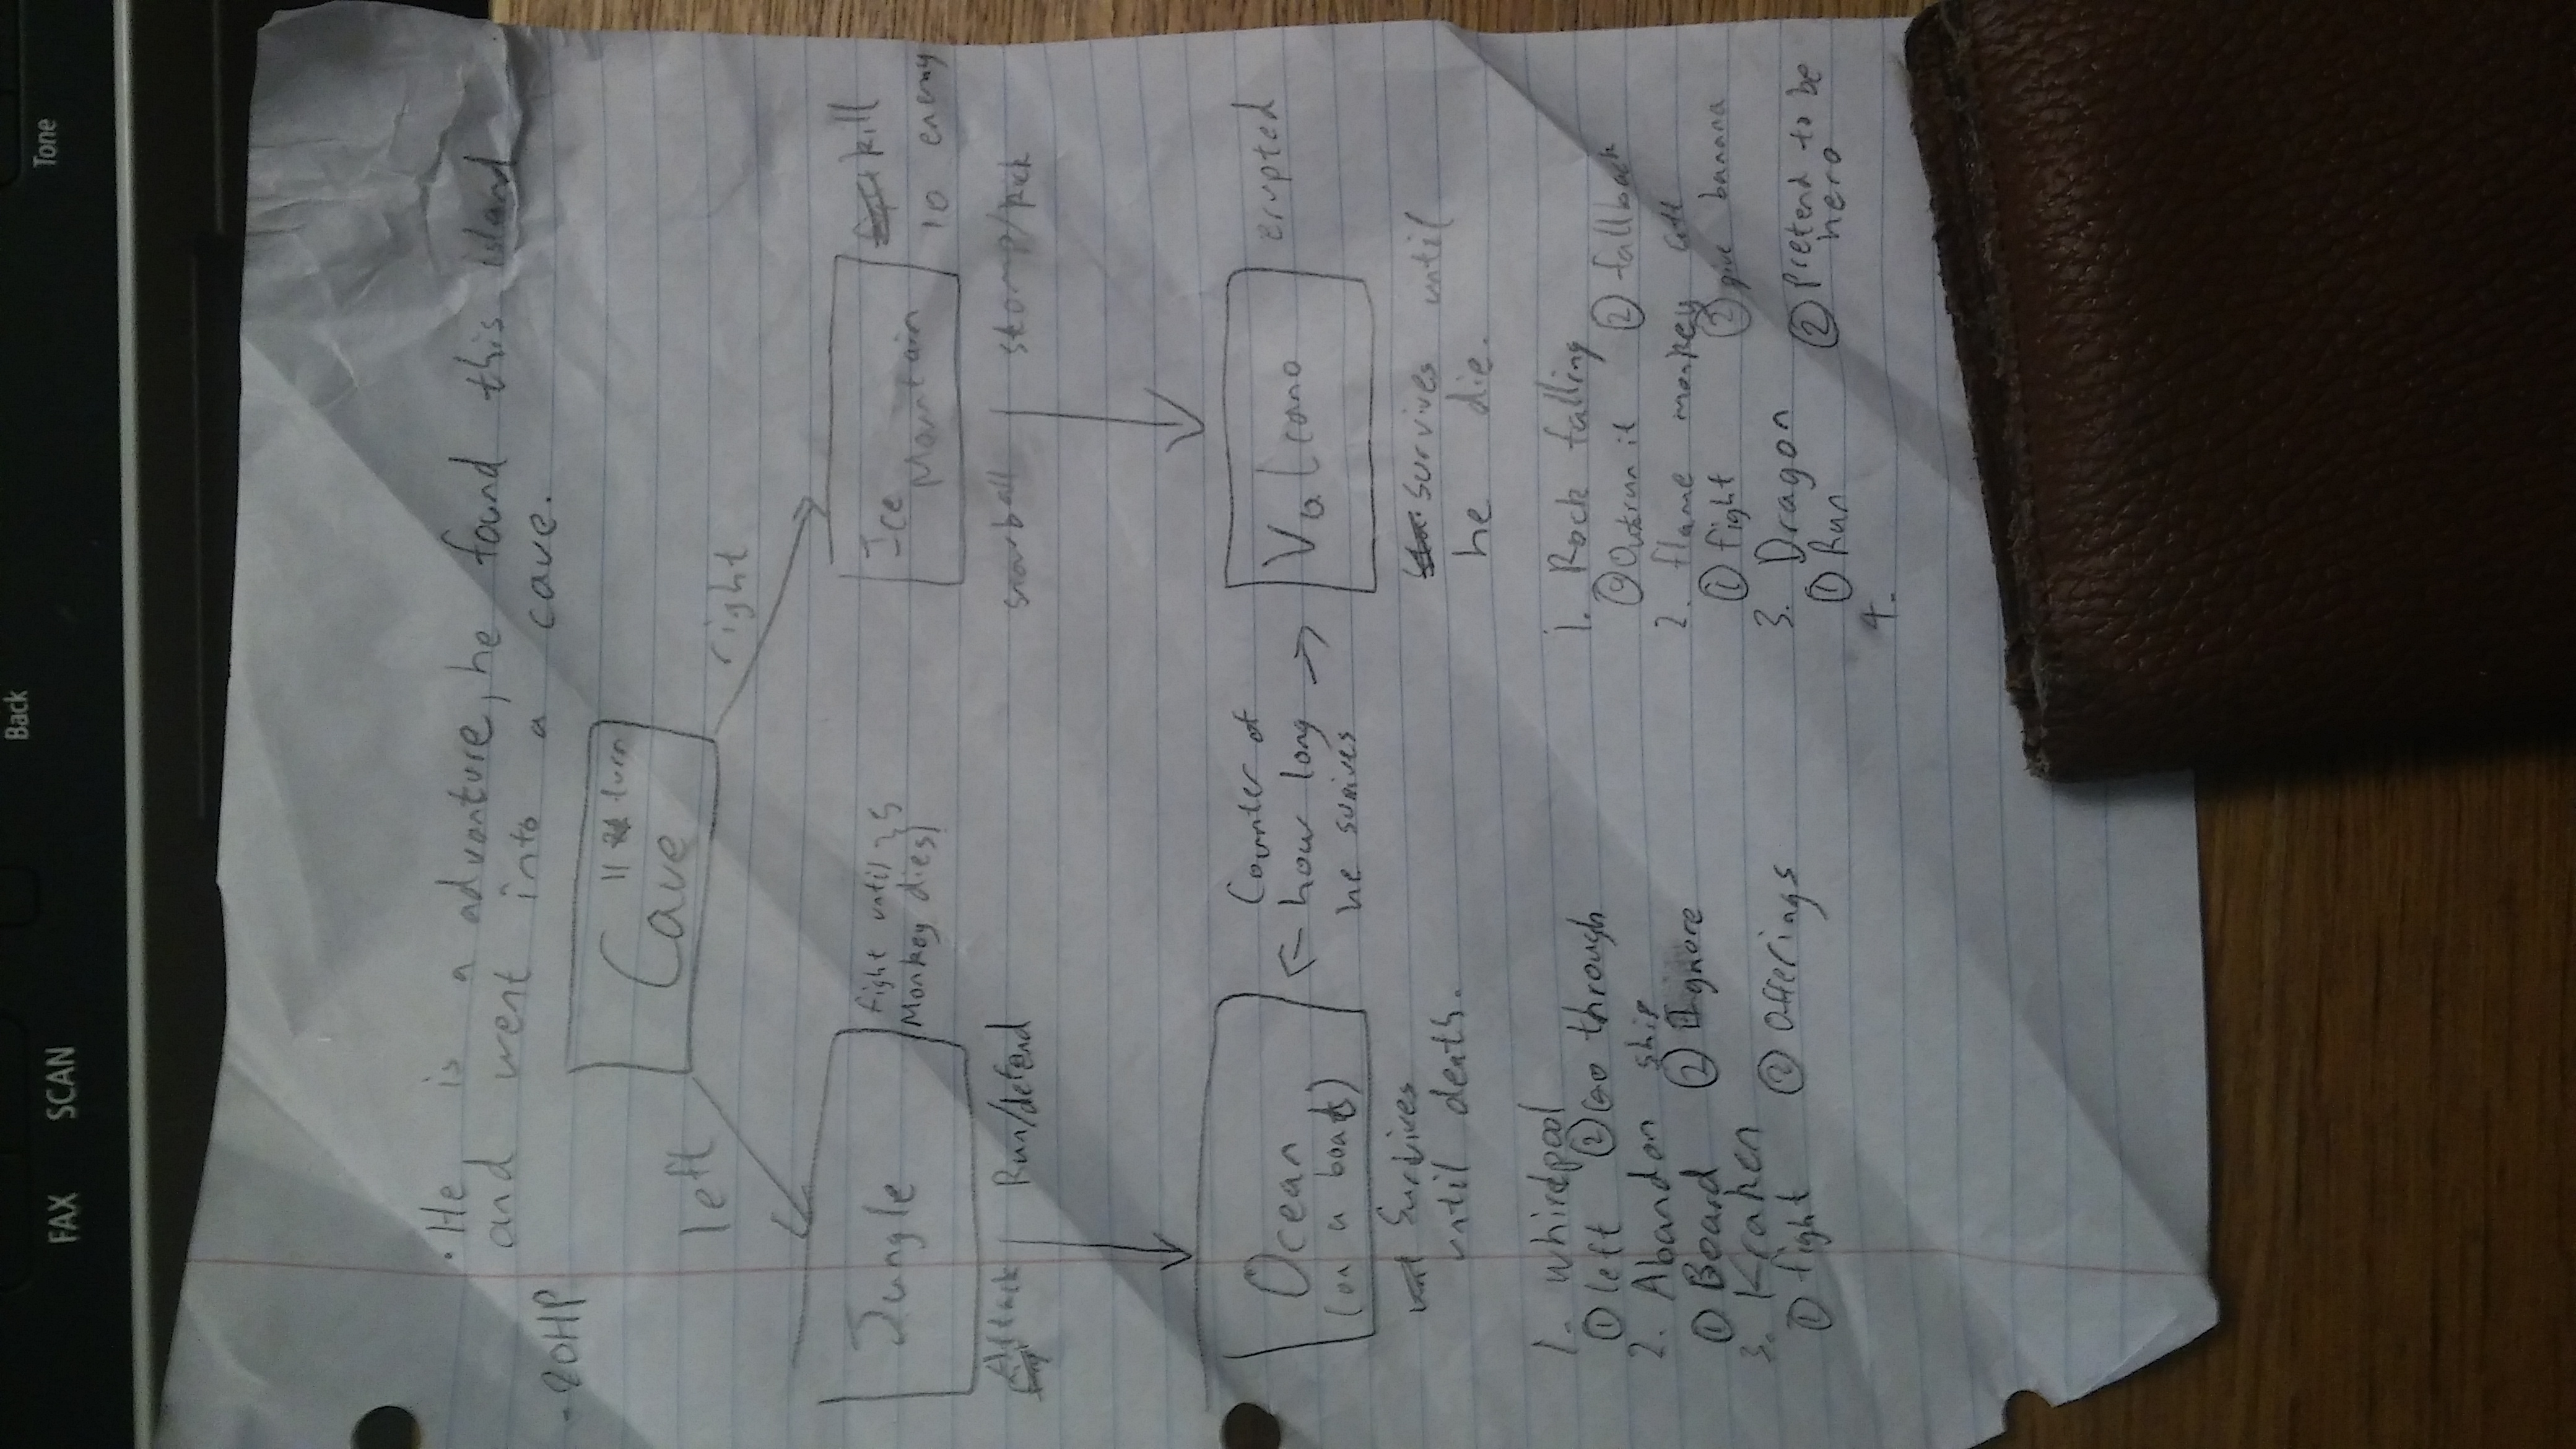 Back
FAX SCAN
Tone
· He is a advanture, he found this island
and went into a cave.
- 20HP
11 turn
Cave
left
right
Jungle
fight until
Monkey dies
5
Ice
Mountain
kill
10 enemy
Attack Run/defend
snowball stomp/kick
Ocean
(on a boat)
Counter of
how long
he survives
Volcano
erupted
Survives
until death.
survives until
he die.
1. whirlpool
① left ② Go through
2. Abandon ship
① Board ② Ignore
3. Kraken
① fight ② Offerings
1. Rock falling
① Outrun it ② fallback
2. flame monkey
① fight ② give banana
3. Dragon
① Run ② Pretend to be
hero
4.